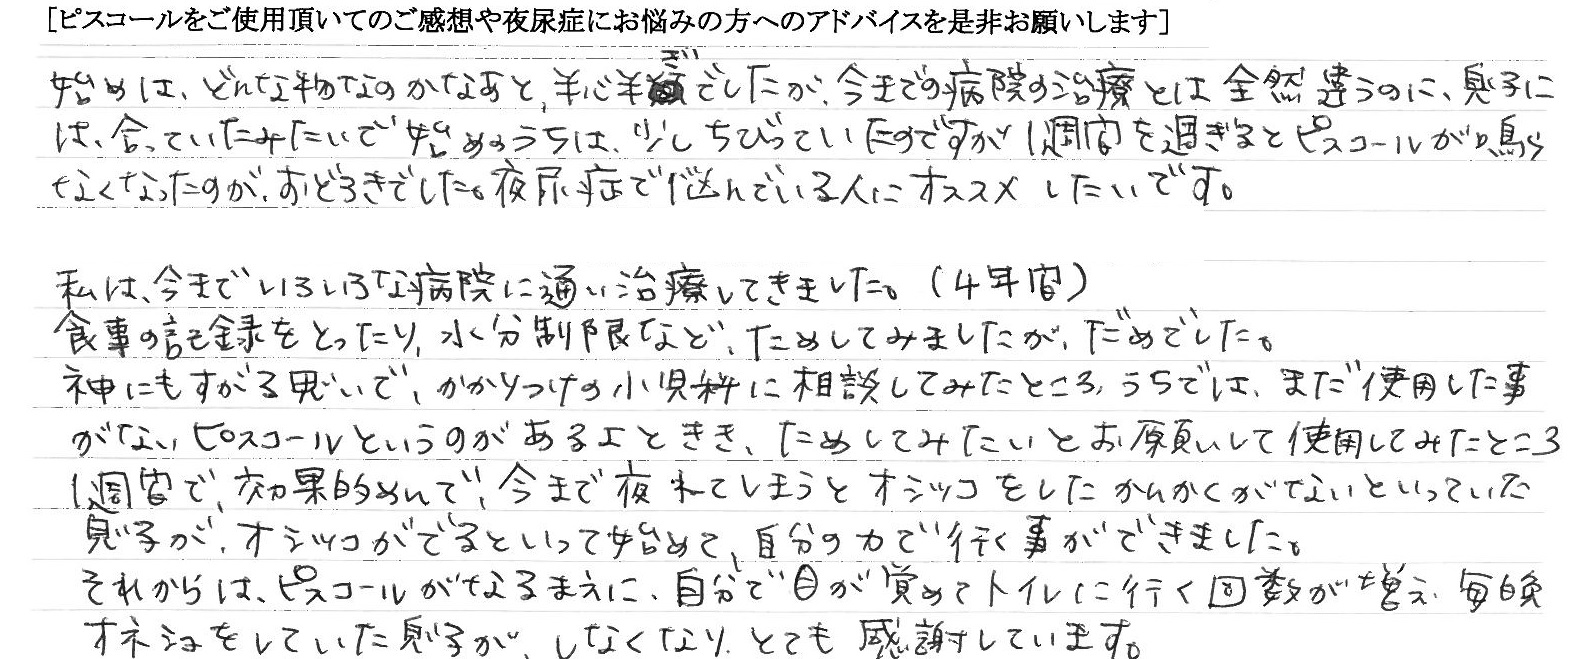 [ピスコールをご使用頂いてのご感想や夜尿症にお悩みの方へのアドバイスを是非お願いします]
始めは、どんな物なのかなあと、半心半疑でしたが、今までの病院の治療とは全然違うのに、息子に
は、合っていたみたいで始めのうちは、少しちびっていたのですが1週間を過ぎるとピスコールが鳴ら
なくなったのが、おどろきでした。夜尿症で悩んでいる人にオススメしたいです。
私は、今までいろいろな病院に通い治療してきました。(4年間)
食事の記録をとったり、水分制限など、ためしてみましたが、だめでした。
神にもすがる思いで、かかりつけの小児科に相談してみたところ、うちでは、まだ使用した事
がないピスコールというのがあるよときき、ためしてみたいとお願いして使用してみたところ
1週間で、効果的めんで、今まで夜ねてしまうとオシッコをしたかんかくがないといっていた
息子が、オシッコがでるといって始めて、自分の力で行く事ができました。
それからは、ピスコールがなるまえに、自分で目が覚めてトイレに行く回数が増え、毎晩
オネショをしていた息子が、しなくなり、とても感謝しています。